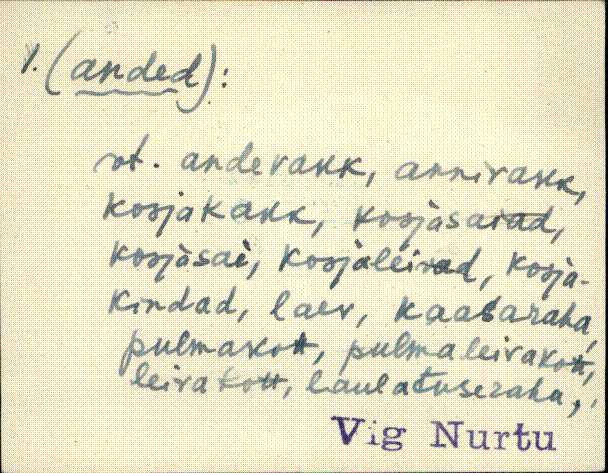 1. (anded):
vt. andevakk, annivakk,
kosjakakk, kosjasaiad,
kosjasai, kosjaleivad, kosja-
kindad, laev, kaasaraha,
pulmakott, pulmaleivakott,
leivakott, laulatuseraha,
Vig Nurtu